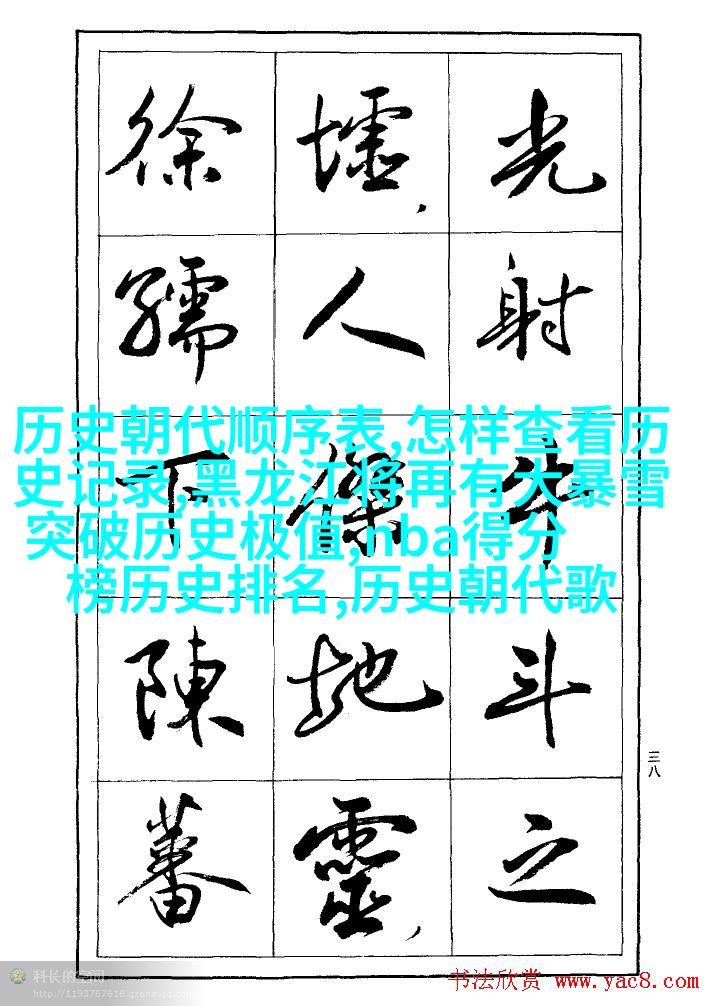 光射牛斗之
墟,人傑地靈,
徐孺下陳蕃
历史朝代顺序表,怎样查看历
史记录,黑龙江将再有大暴雪
突破历史极值,nba得分
榜历史排名,历史朝代歌
三八
科长的空间
http://1193767618.qzone.qq.com
书法欣赏 www.yac8.com